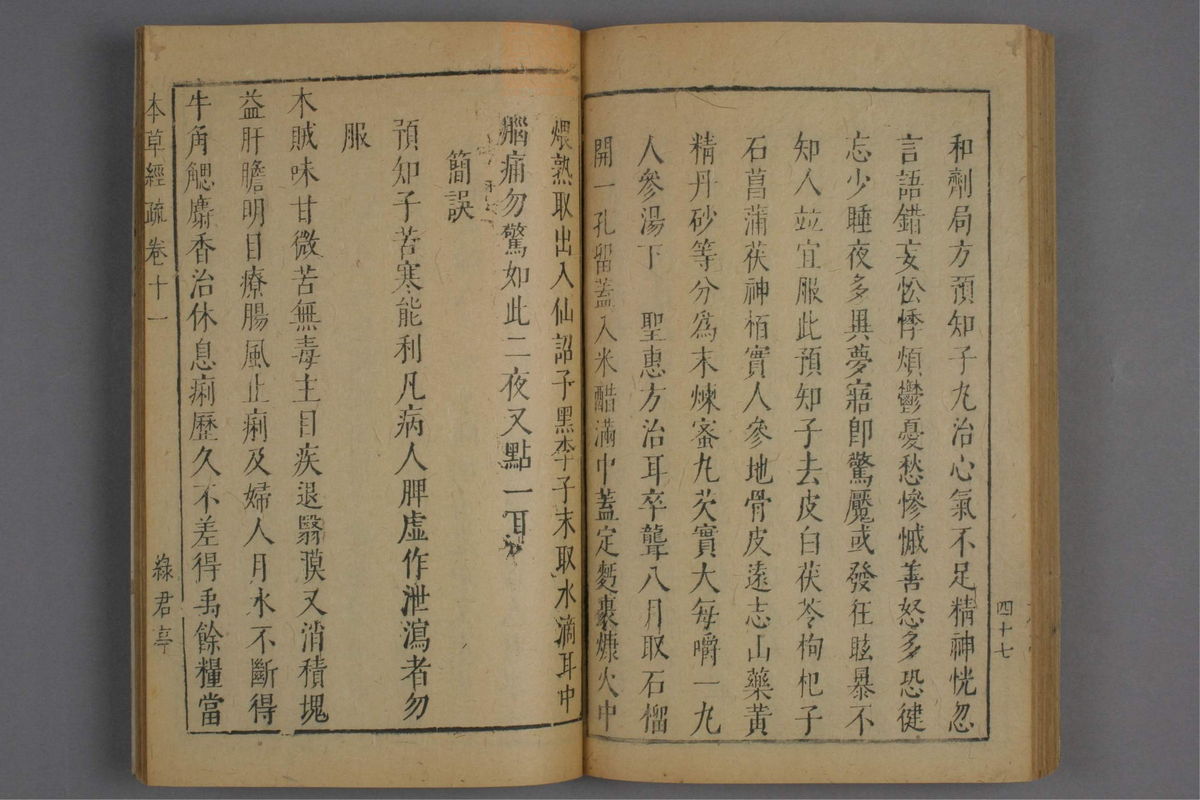 和劑局方預知子丸治心氣不足精神恍忽
言語錯妄忪悸煩鬱憂愁慘慽善怒多恐健
忘少睡夜多異夢寤卽驚魘或發狂眩暴不
知人竝宜服此預知子去皮白茯苓枸杞子
石菖蒲茯神栢實人參地骨皮遠志山藥黃
精丹砂等分爲末煉蜜丸芡實大每嚼一丸
人參湯下　聖惠方治耳卒聾八月取石榴
開一孔留蓋入米醋滿中蓋定麪裹煻火中
四十七
煨熟取出入仙詔子黑李子末取水滴耳中
腦痛勿驚如此二夜又點一耳
簡誤
預知子苦寒能利凡病人脾虛作泄瀉者勿
服
木賊味甘微苦無毒主目疾退翳膜又消積塊
益肝膽明目療腸風止痢及婦人月水不斷得
牛角䚡麝香治休息痢歷久不差得禹餘糧當
本草經疏卷十一
綠君亭